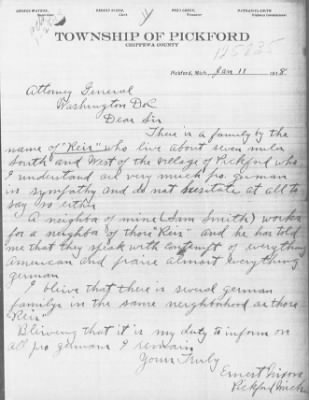 TOWNSHIP OF PICKFORD
CHIPPEWA COUNTY
Pickford, Mich. Jan 11 1918
Attorney General
Washington D.C.
Dear Sir
There is a family by the
name of "Reis" who live about seven miles
South and West of the village of Pickford who
I understand are very much pro german
in sympathy and do not hesitate at all to
say so either
A neighbor of mine (Sam Smith) works
for a neighbor of those "Reis" and he has told
me that they speak with contempt of everything
American and praise almost everything
german
I blieve that there is several german
familys in the same neighborhood as those
"Reis"
Blieving that it is my duty to inform on
all pro germans I remain
Yours Truly
Ernest
Pickford Mich